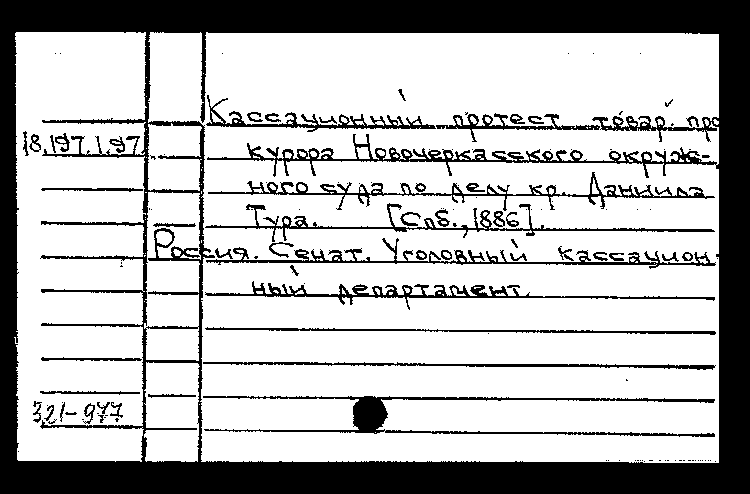 Кассационный протест товар. про
18.197.1.97.
курора Новочеркасского окруж-
ного суда по делу кр. Даниила
Тура. [Спб., 1886].
Россия. Сенат. Уголовный кассацион-
ный департамент.
321-977